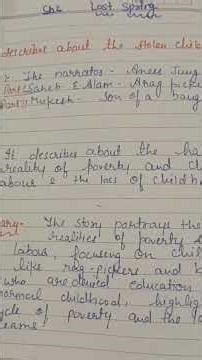 Ch2 Lost Spring
describes about the stolen chil
The narrator - Anees Jung
Part I Saheb E Alam - A rag picker
Part II Mukesh - Son of a bang
It describes about the ha
reality of poverty and ch
labour & the loss of childh
ary - The story portrays the
realities of poverty
labour, focusing on chil
like rag-pickers and b
who are denied education
normal childhood, highlig
cycle of poverty and the lo
reams.